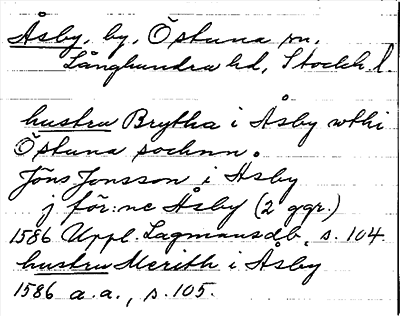 Åsby, by, Östuna sn.
Långhundra hd, Stockh. l.
hustru Brytha i Åsby wthi
Östuna sochnn.
Jöns Jonsson i Åsby
j för:ne Åsby (2 ggr.)
1586 Uppl. Lagmansdb. s. 104.
hustru Merith i Åsby
1586 a.a., s. 105.